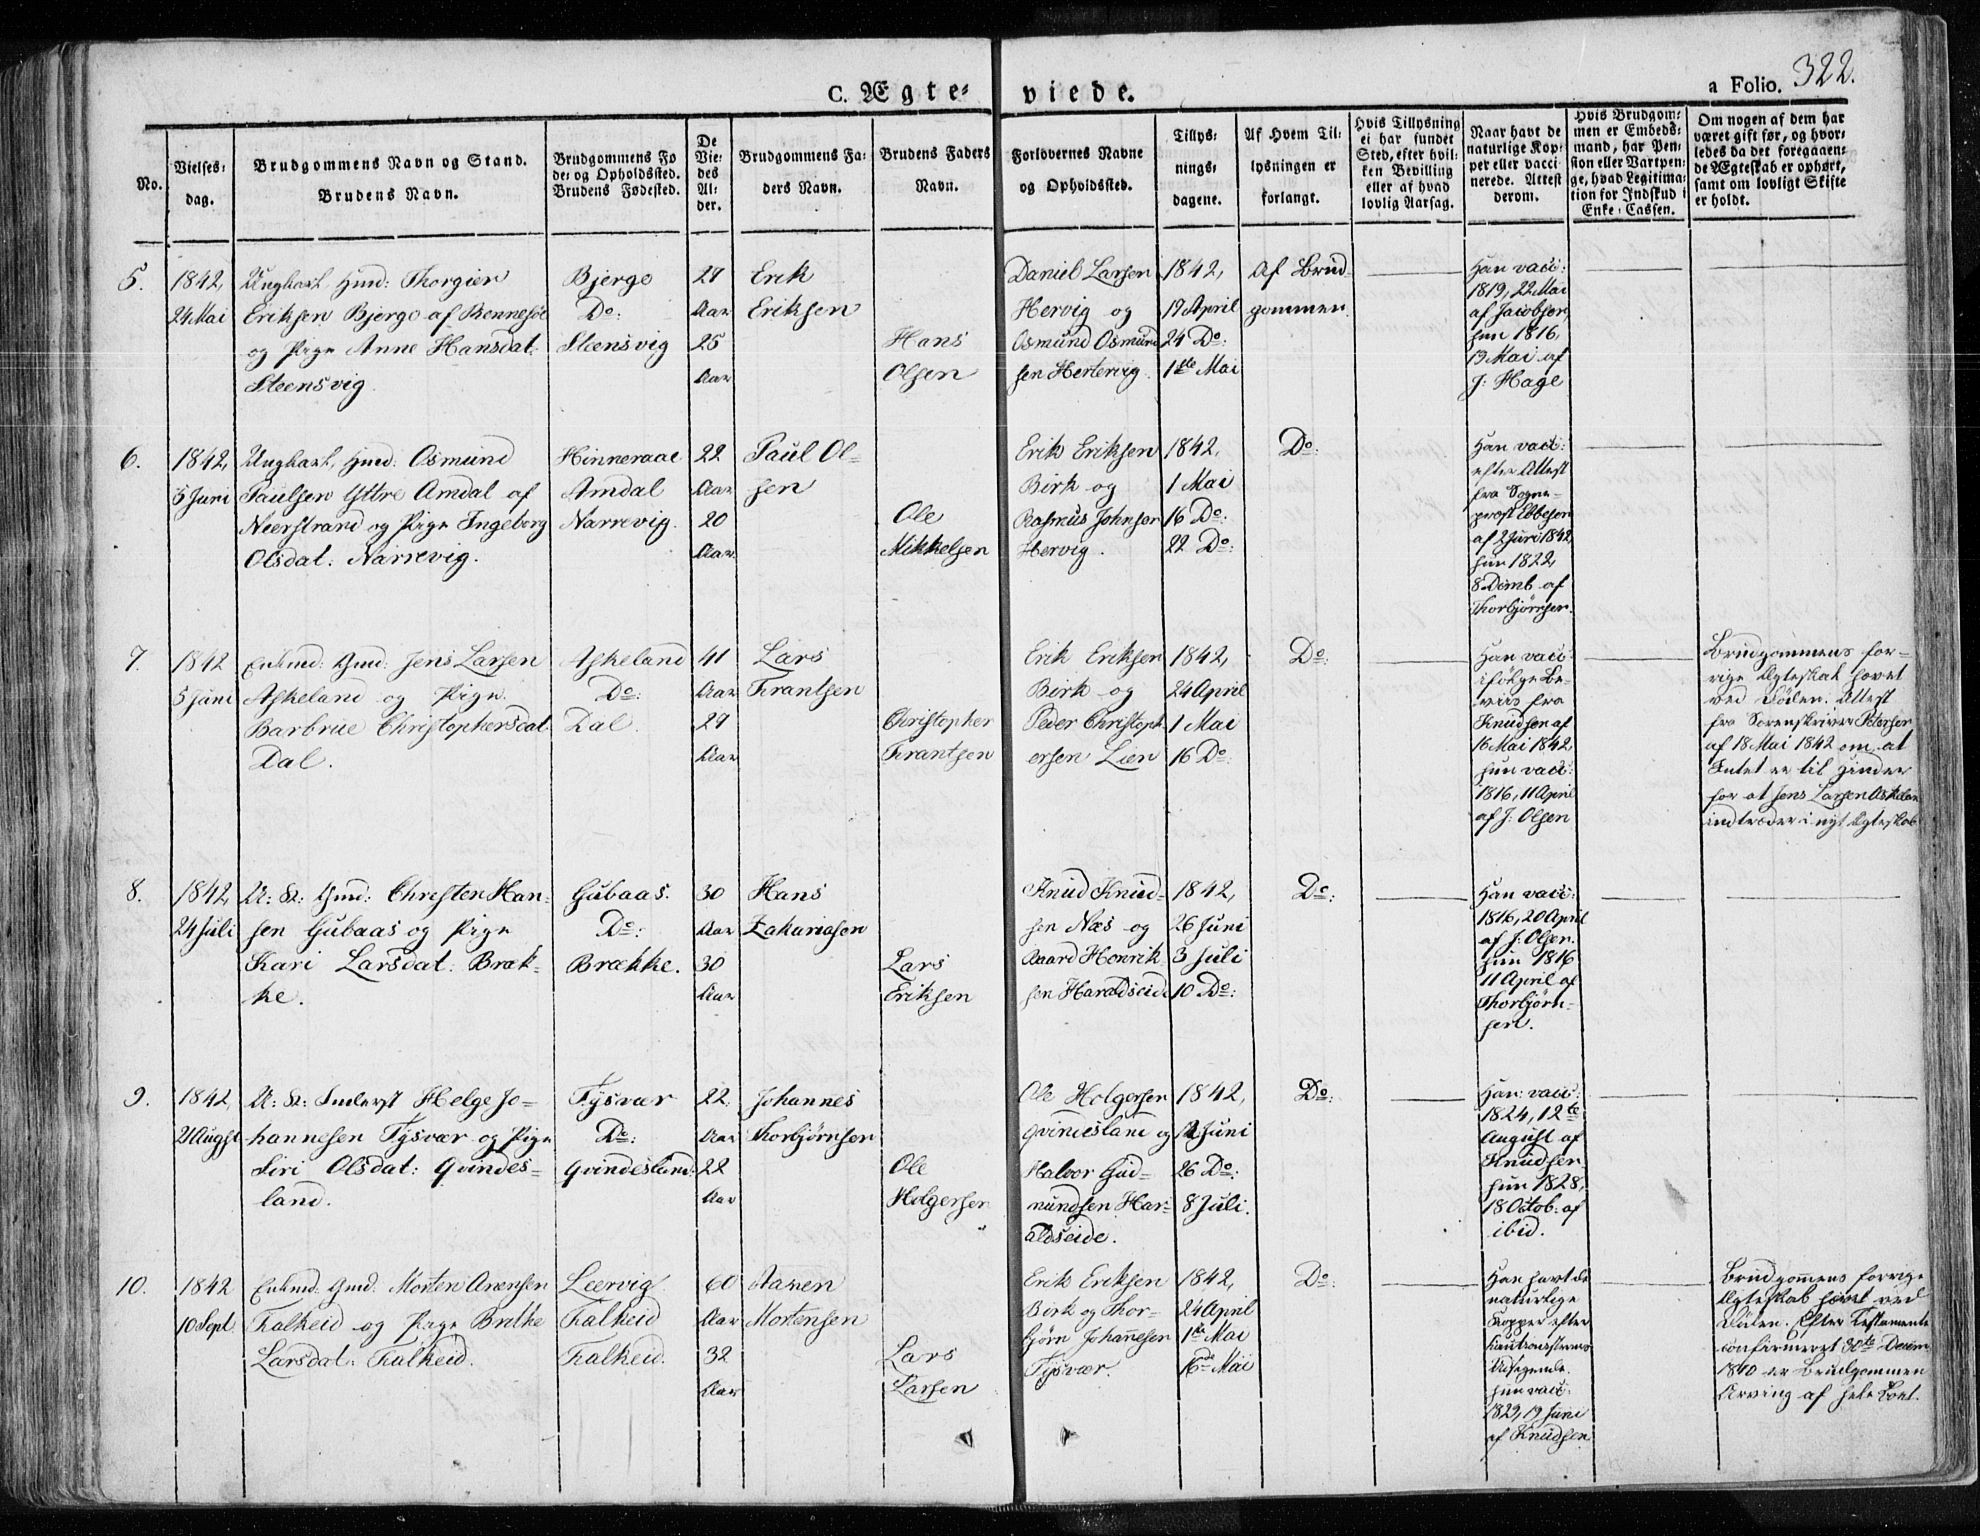 C. Ægte-
viede.
a Folio. 322.
No.
Vielses-
dag.
Brudgommens Navn og Stand.
Brudens Navn.
Brudgommens Fø
de- og Opholdssted.
Brudens Fødested.
De
Vie-
des
Al-
der.
Brudgommens Fa-
ders Navn.
Brudens Faders
Navn.
Forlovernes Navne
og Opholdssted.
Tillys-
nings-
dagene.
Af Hvem Til-
lysningen er
forlangt.
Hvis Tillysning
ei har fundet
Sted, efter hvil-
ken Bevilling
eller af hvad
lovlig Aarsag.
Naar havt de
naturlige Kop-
per eller vacci-
nerede. Attest
derom.
Hvis Brudgom-
men er Embeds-
mand, har Pen-
sion eller Vartpen-
ge, hvad Legitima-
tion for Indskud i
Enke-Cassen.
Om nogen af dem har
været gift før, og hvor-
ledes da det foregaaen-
de Ægteskab er ophørt,
samt om lovligt Skifte
er holdt.
5.
1842,
24 Mai
Ungkarl, Gmd: Thorgier
Eriksen Bjergo af Rennesöe
og Pige Anne Hansdat:
Steensvig.
Bjergo
Do:
Steensvig
27
Aar
25
Aar
Erik
Eriksen
Hans
Olsen
Daniel Larsen
Hervig og
Osmund Osmund-
sen Hertervig.
1842,
17 April
24 Do:
1ste Mai
Af Brud-
gommen.
Han vacc:
1819, 22 Mai
af Jacobsen,
hun 1816,
19 Mai af
J: Hage
6.
1842,
5 Juni
Ungkarl, Gmd: Osmund
Paulsen Yttre Amdal af
Neerstrand og Pige Ingeborg
Olsdat: Narrevig.
Hinneraae
Amdal
Narrevig.
22
Aar
20
Aar
Paul Ol-
sen
Ole
Mikkelsen
Erik Eriksen
Birk og
Rasmus Johnsen
Hervig.
1842,
1 Mai
16 Do:
22 Do:
Do:
Han vacc:
efter Attest
fra Sogne-
præst Ebbesen
af 2 Juni 1842,
hun 1822,
8 Decmb. af
Thorbjörnsen.
7.
1842
5 Juni
Enkmd: Gmd: Jens Larsen
Askeland og Pige
Barbrue Christophersdat:
Dal.
Askeland
Do:
Dal.
41
Aar
29
Aar
Lars
Frantsen
Christopher
Frantsen
Erik Eriksen
Birk og
Peder Christoph-
ersen Lien
1842,
24 April
1 Mai
16 Do:
Do:
Han vacc:
ifölge Be-
viis fra
Knudsen af
16 Mai 1842,
hun vacc:
1816, 11 April
af J: Olsen
Brudgommens for-
rige Ægteskab hævet
ved Döden. Attest
fra Sorenskriver Petersen
af 18 Mai 1842 om, at
Intet er til Hinder
for at Jens Larsen Askeland
indtræder i nyt Ægteskab
8.
1842,
24 Juli
U: K: Gmd: Christen Han-
sen Gubaas og Pige
Kari Larsdat: Bræk-
ke.
Gubaas.
Do:
Brække.
30
Aar
30
Aar
Hans
Zakariasen
Lars
Eriksen
Knud Knud-
sen Næs og
Baard Henrik-
sen Haraldseide
1842,
26 Juni
3 Juli
10 Do:
Do:
Han vacc:
1816, 20 April
af J: Olsen.
hun 1816
11 April af
Thorbjörn-
sen.
9.
1842,
21 Augst
U: K: Inderst Helge Jo-
hannesen Tysvær og Pige
Siri Olsdat: Qvindes-
land.
Tysvær
Do:
Qvindesland.
22.
Aar
22
Aar
Johannes
Thorbjörnsen
Ole
Holgersen
Ole Holgersen
Qvindesland og
Halvor Gud-
mundsen Har-
aldseide.
1842,
12 Juni
26 Do:
8 Juli.
Do:
Han vacc:
1824, 12te
August af
Knudsen.
hun 1828,
18 Octob: af
ibid.
10.
1842
10 Sept
Enkmd: Gmd: Morten Aanensen
Falkeid og Pige Brithe
Larsdat: Falkeid.
Leervig.
Falkeid
Falkeid.
60
Aar
32
Aar
Aanen
Mortensen
Lars
Larsen
Erik Eriksen
Birk og Thor-
björn Johannesen
Tysvær.
1842,
24 April
1ste Mai
16de Mai
Do:
Han havt de
naturlige
Kopper efter
Udsigende.
hun vacc:
1829, 19 Juni
af Knudsen
Brudgommens forrige
Ægteskab hævet ved
Döden. Efter Testamente
confirmeret 30te Decem
1840 er Brudgommen
Arving af hele Boet.